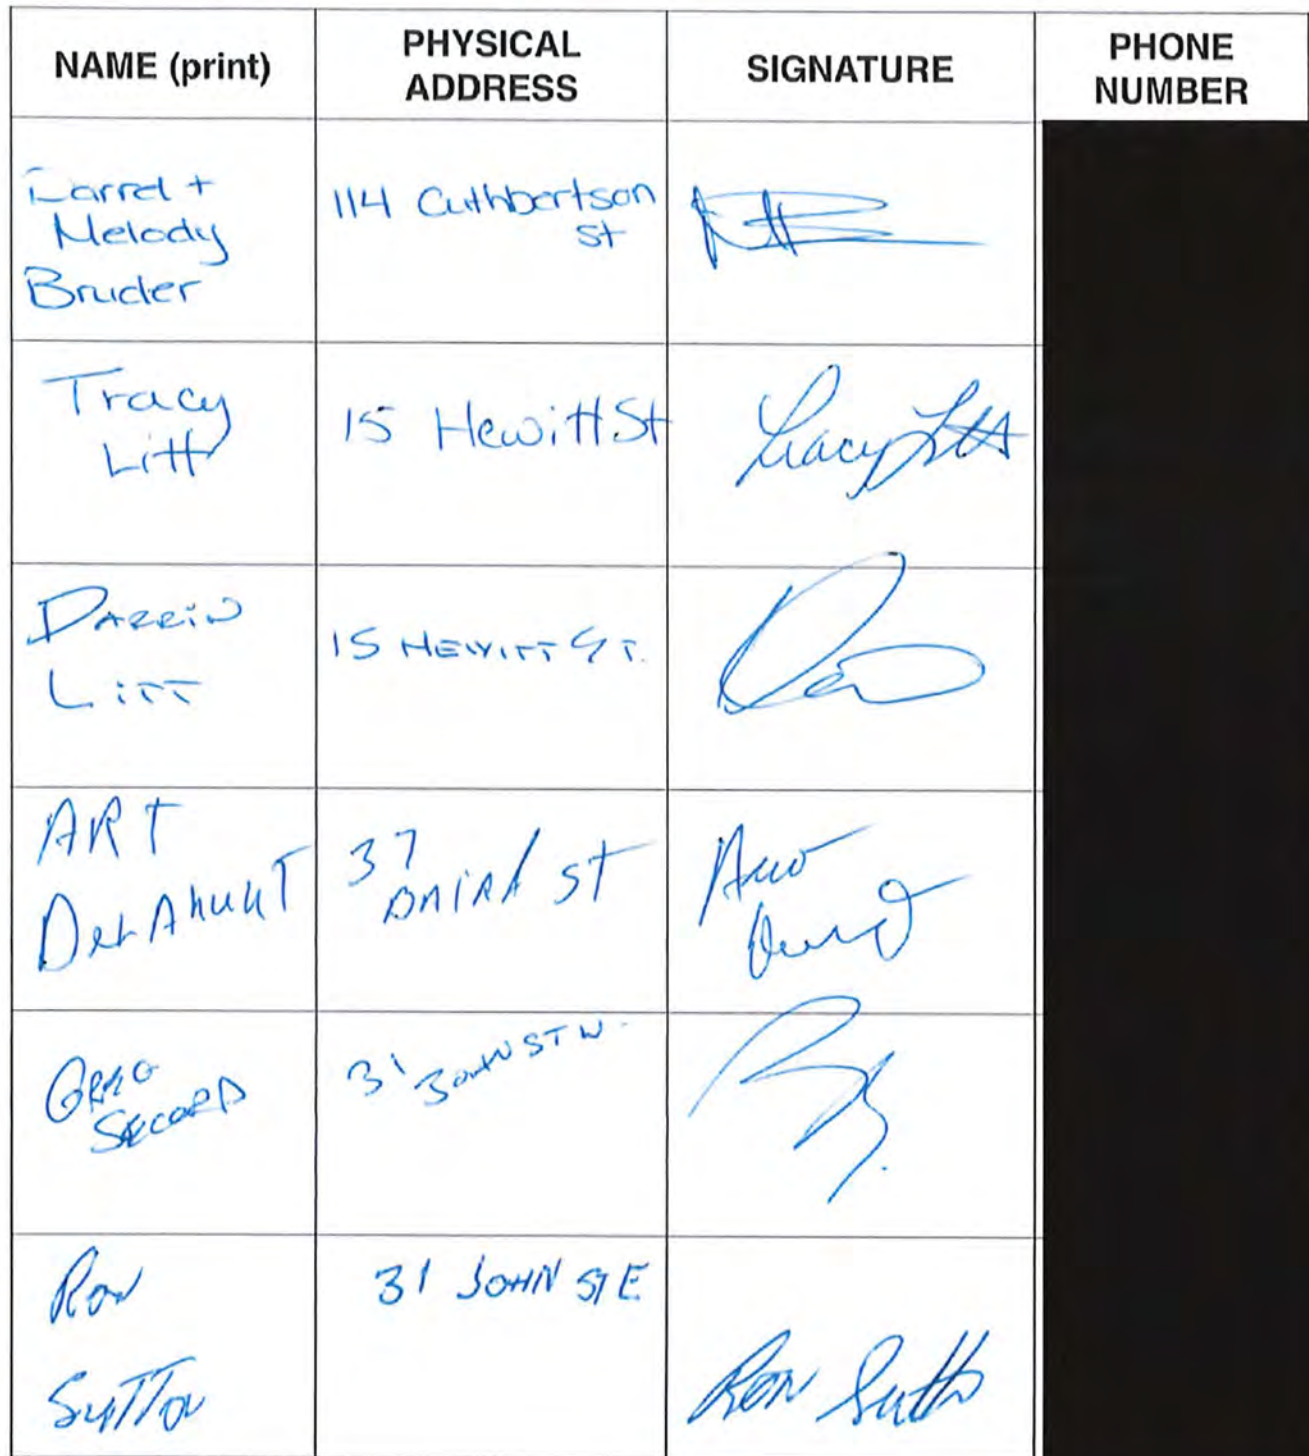 NAME (print)
PHYSICAL
ADDRESS
SIGNATURE
PHONE
NUMBER
Darrel +
Melody
Bruder
114 Cuthbertson
St
Tracy
Litt
15 Hewitt St
Tracy Litt
DARRIN
LITT
15 HEWITT ST.
ART
DELAhuNT
37
BAIRd ST
GREG
SECORD
31 JOHN ST W.
RON
SUTTON
31 JOHN ST E
Ron Sutton